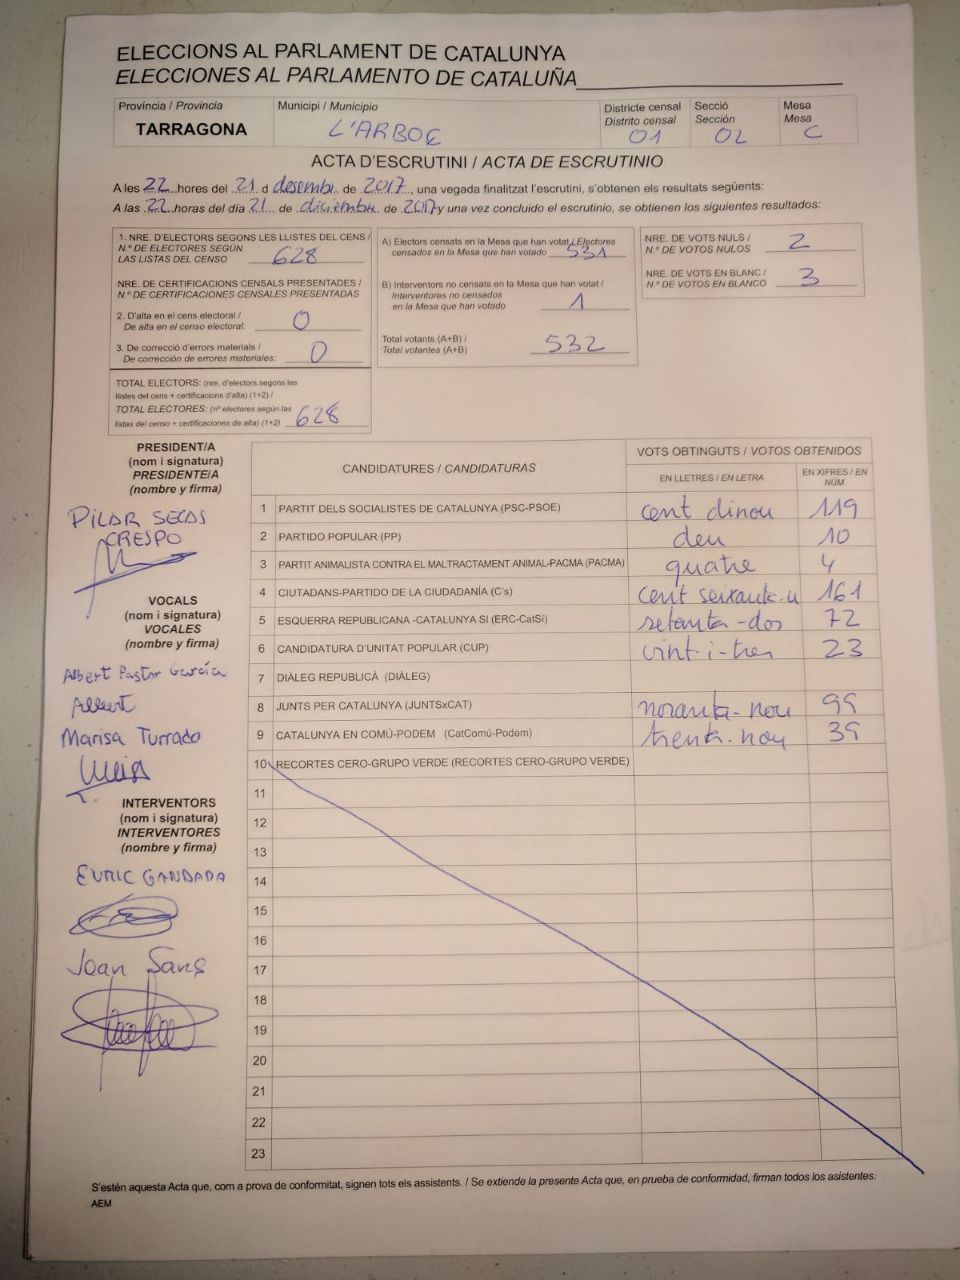 ELECCIONS AL PARLAMENT DE CATALUNYA
ELECCIONES AL PARLAMENTO DE CATALUÑA
Província / Provincia
TARRAGONA
Municipi / Municipio
L'ARBOÇ
Districte censal
Distrito censal
01
Secció
Sección
02
Mesa
Mesa
C
ACTA D'ESCRUTINI / ACTA DE ESCRUTINIO
A les 22 hores del 21 d desembr. de 2017, una vegada finalitzat l'escrutini, s'obtenen els resultats següents:
A las 22 horas del día 21 de diciembre de 2017 y una vez concluido el escrutinio, se obtienen los siguientes resultados:
1. NRE. D'ELECTORS SEGONS LES LLISTES DEL CENS /
N.º DE ELECTORES SEGÚN
LAS LISTAS DEL CENSO 628
NRE. DE CERTIFICACIONS CENSALS PRESENTADES /
N.º DE CERTIFICACIONES CENSALES PRESENTADAS
2. D'alta en el cens electoral /
De alta en el censo electoral: 0
3. De correcció d'errors materials /
De corrección de errores materiales: 0
TOTAL ELECTORS: (nre. d'electors segons les
llistes del cens + certificacions d'alta) (1+2) /
TOTAL ELECTORES: (nº electores según las
listas del censo + certificaciones de alta) (1+2) 628
A) Electors censats en la Mesa que han votat / Electores
censados en la Mesa que han votado 531
B) Interventors no censats en la Mesa que han votat /
Interventores no censados
en la Mesa que han votado 1
Total votants (A+B) /
Total votantes (A+B) 532
NRE. DE VOTS NULS /
N.º DE VOTOS NULOS 2
NRE. DE VOTS EN BLANC /
N.º DE VOTOS EN BLANCO 3
PRESIDENT/A
(nom i signatura)
PRESIDENTE/A
(nombre y firma)
PILAR SECAS
CRESPO
VOCALS
(nom i signatura)
VOCALES
(nombre y firma)
Albert Pastor García
Albert
Marisa Turrado
INTERVENTORS
(nom i signatura)
INTERVENTORES
(nombre y firma)
ENRIC GANDARA
Joan Sans
CANDIDATURES / CANDIDATURAS
VOTS OBTINGUTS / VOTOS OBTENIDOS
EN LLETRES / EN LETRA
EN XIFRES / EN NÚM.
1 PARTIT DELS SOCIALISTES DE CATALUNYA (PSC-PSOE) cent dinou 119
2 PARTIDO POPULAR (PP) deu 10
3 PARTIT ANIMALISTA CONTRA EL MALTRACTAMENT ANIMAL-PACMA (PACMA) quatre 4
4 CIUTADANS-PARTIDO DE LA CIUDADANÍA (C's) cent seixanta-u 161
5 ESQUERRA REPUBLICANA -CATALUNYA SI (ERC-CatSí) setanta-dos 72
6 CANDIDATURA D'UNITAT POPULAR (CUP) vint-i-tres 23
7 DIÀLEG REPUBLICÀ (DIÀLEG)
8 JUNTS PER CATALUNYA (JUNTSxCAT) noranta-nou 99
9 CATALUNYA EN COMÚ-PODEM (CatComú-Podem) trenta-nou 39
10 RECORTES CERO-GRUPO VERDE (RECORTES CERO-GRUPO VERDE)
11
12
13
14
15
16
17
18
19
20
21
22
23
S'estén aquesta Acta que, com a prova de conformitat, signen tots els assistents. / Se extiende la presente Acta que, en prueba de conformidad, firman todos los asistentes.
AEM